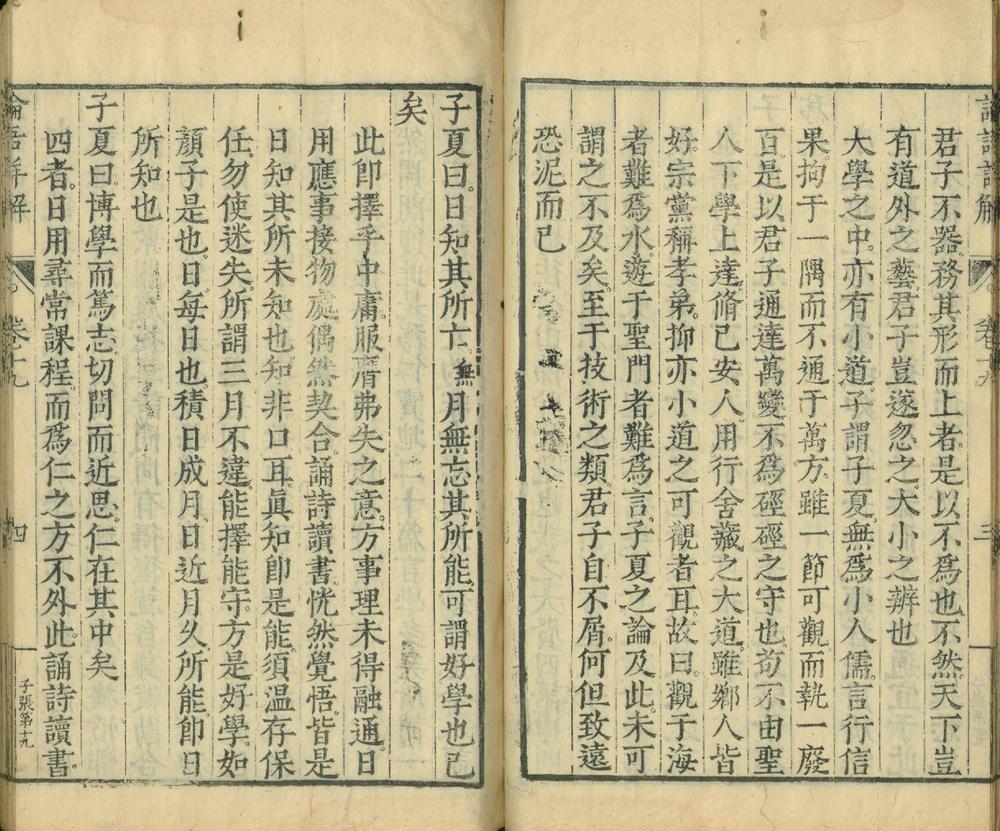 君子不器務其形而上者是以不爲也不然天下豈
有道外之藝君子豈遂忽之大小之辨也
大學之中亦有小道子謂子夏無爲小人儒言行信
果拘于一隅而不通于萬方雖一節可觀而執一廢
百是以君子通達萬變不爲硜硜之守也苟不由聖
人下學上達脩己安人用行舍藏之大道雖鄉人皆
好宗黨稱孝弟抑亦小道之可觀者耳故曰觀于海
者難爲水遊于聖門者難爲言子夏之論及此未可
謂之不及矣至于技術之類君子自不屑何但致遠
恐泥而已
三
子夏曰日知其所亡無月無忘其所能可謂好學也已
矣
此卽擇乎中庸服膺弗失之意方事理未得融通日
用應事接物處偶然契合誦詩讀書恍然覺悟皆是
日知其所未知也知非口耳眞知卽是能須溫存保
任勿使迷失所謂三月不違能擇能守方是好學如
顏子是也日每日也積日成月日近月久所能卽日
所知也
子夏曰博學而篤志切問而近思仁在其中矣
四者日用尋常課程而爲仁之方不外此誦詩讀書
論語詳解
卷十九
四
子張第十九